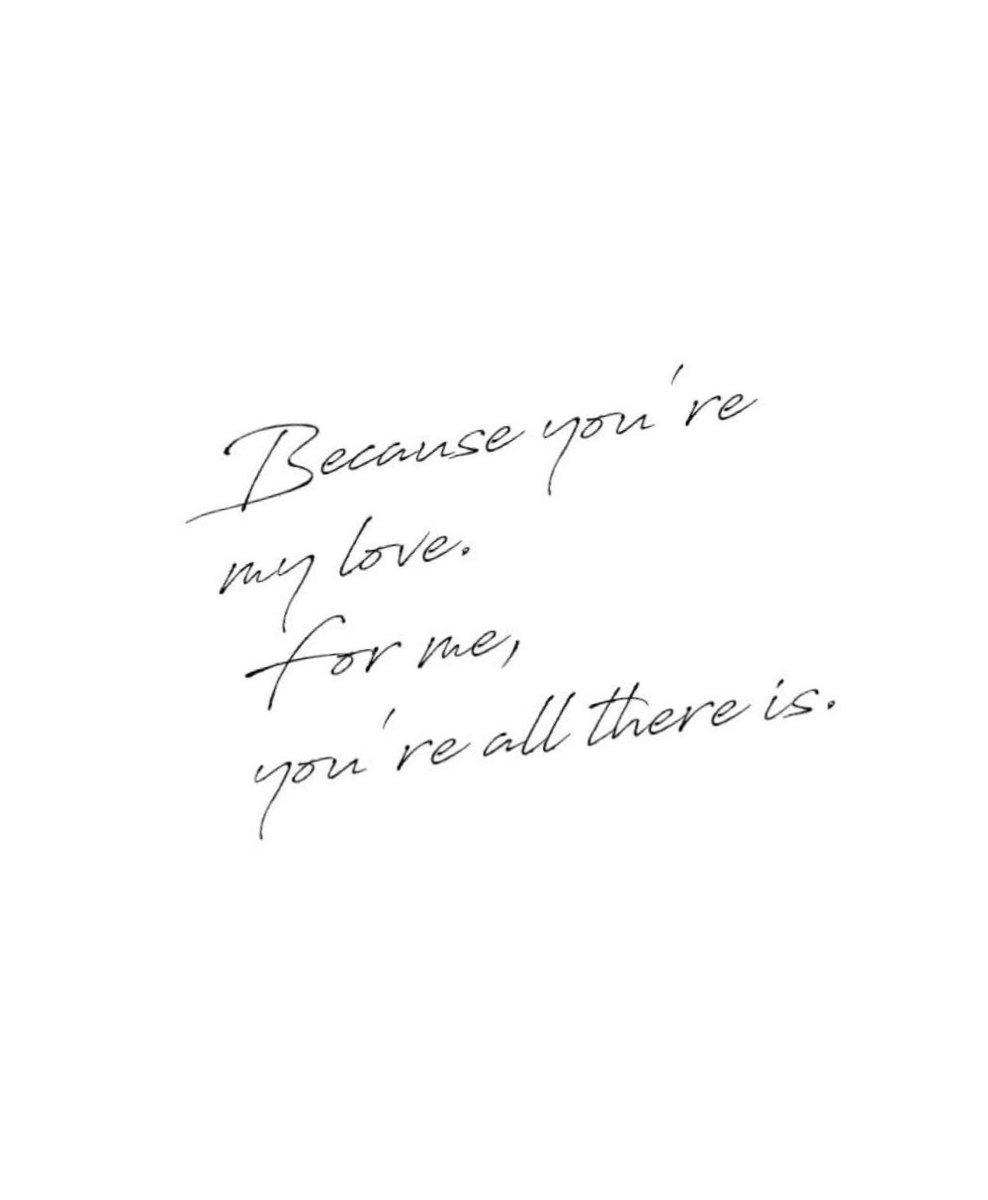 Because you're
my love.
for me,
you're all there is.